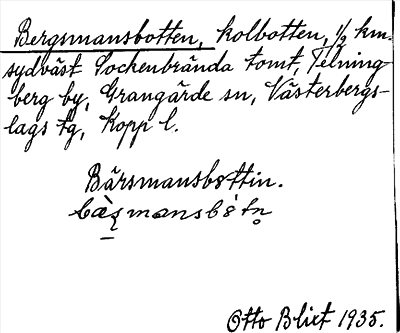 Bergsmansbotten, kolbotten, 1/2 km.
sydväst Sockenbrända tomt, Telning
berg by, Grangärde sn, Västerbergs-
lags tg, Kopp l.
Bärsmansbottin.
Otto Blixt 1935.